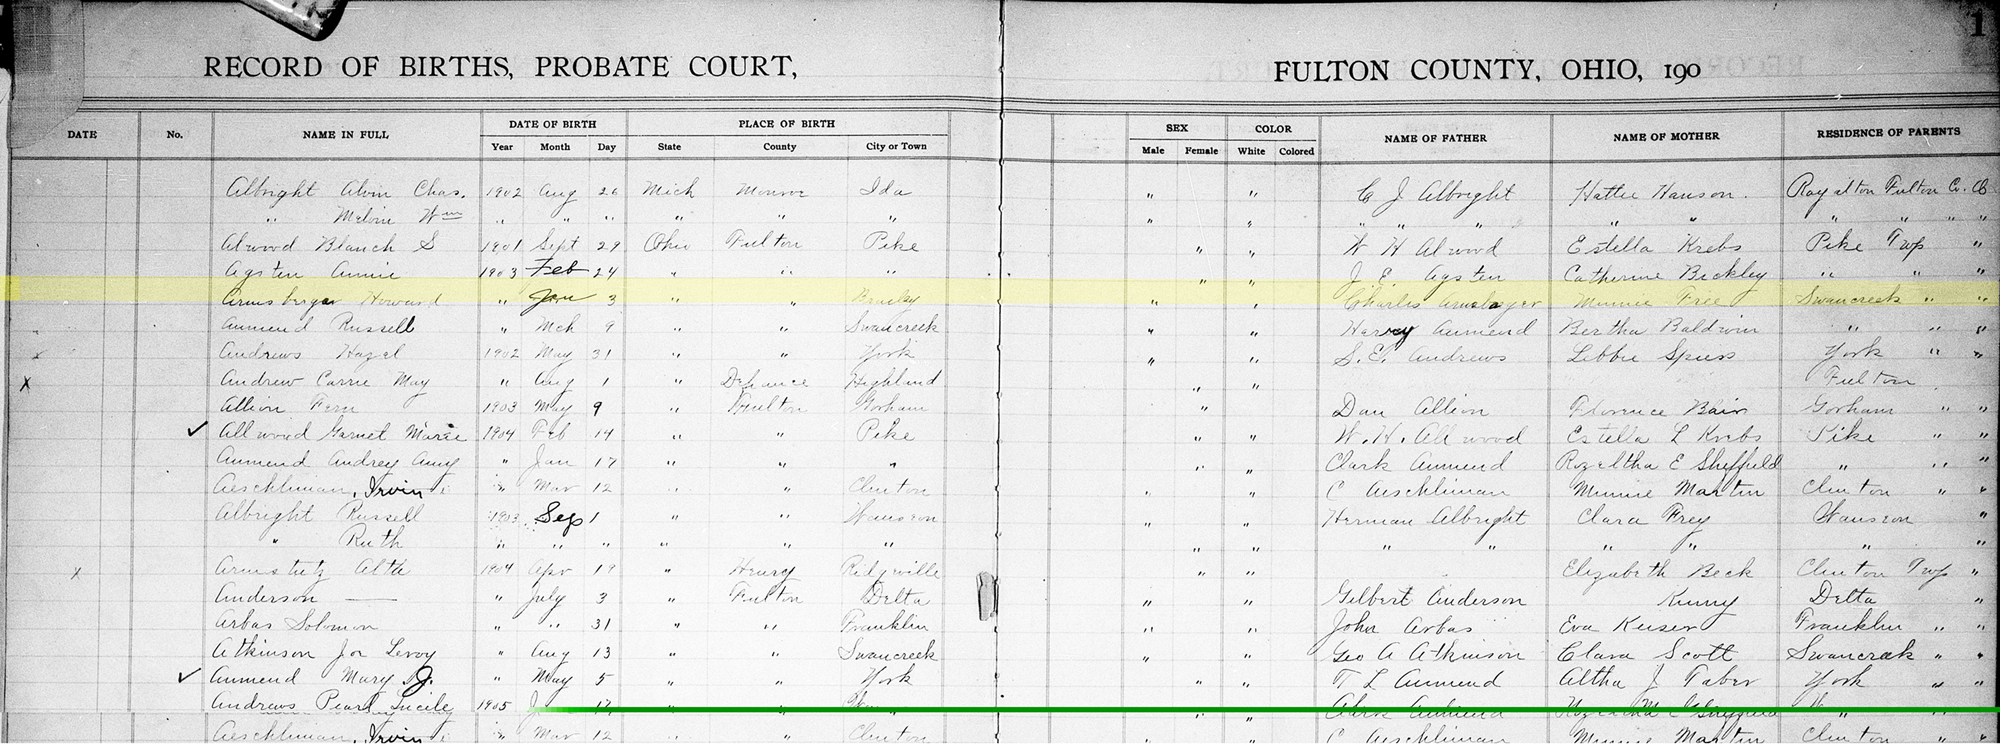 1
RECORD OF BIRTHS, PROBATE COURT, FULTON COUNTY, OHIO, 190
DATE No. NAME IN FULL DATE OF BIRTH PLACE OF BIRTH SEX COLOR NAME OF FATHER NAME OF MOTHER RESIDENCE OF PARENTS
Year Month Day State County City or Town Male Female White Colored
Albright Alvin Chas. 1902 Aug 26 Mich Monroe Ida " " C J Albright Hattie Hanson. Royalton Fulton Co. O
" Melvin Wm " " " " " " " " " " " " " " " " "
Alwood Blanch S 1901 Sept 29 Ohio Fulton Pike " " W H Alwood Estella Krebs Pike Twp "
Agsten Annie 1903 Feb 24 " " " " " J. E. Agsten Catherine Bickley " " "
Armsberger Howard " Jan 3 " " " " Charles Armsberger Minnie Free Swancreek " "
Aumend Russell " Mch 9 " " Swancreek " " Harvey Aumend Bertha Baldwin " " "
x Andrews Hazel 1902 May 31 " " York " " S. E. Andrews Libbie Spiess York " "
x Andrew Carrie May " Aug 1 " Defiance Highland " " Fulton
Allion Fern 1903 May 9 " Fulton Gorham " Dan Allion Florence Bair Gorham " "
✓ Allwood Garnet Marie 1904 Feb 14 " " Pike " " W. H. Allwood Estella L Krebs Pike " "
Aumend Audrey Amy " Jan 17 " " " " " Clark Aumend Rozeltha E Sheffield " " "
Aeschliman, Irvin " Mar 12 " " Clinton " " C Aeschliman Minnie Martin Clinton " "
Albright Russell 1903 Sep 1 " " Wauseon " " Herman Albright Clara Frey Wauseon "
" Ruth " " " " " " " " " " " " " "
x Armstutz Alta 1904 Apr 19 " Henry Ridgeville " " Elizabeth Beck Clinton Twp "
Anderson — " July 3 " Fulton Delta " " Gilbert Anderson Kinny Delta "
Arbas Solomon " " 31 " " Franklin " " John Arbas Eva Keiser Franklin " "
Atkinson Joe Leroy " Aug 13 " " Swancreek " " Geo A Atkinson Clara Scott Swancreek " "
✓ Aumend Mary J. " May 5 " " York " " T L Aumend Altha J Taber York " "
Andrews Pearl Lucile 1905 17 " " Clark Aumend
Aeschliman, Irvin " Mar 12 " " Clinton " " C Aeschliman Minnie Martin Clinton " "